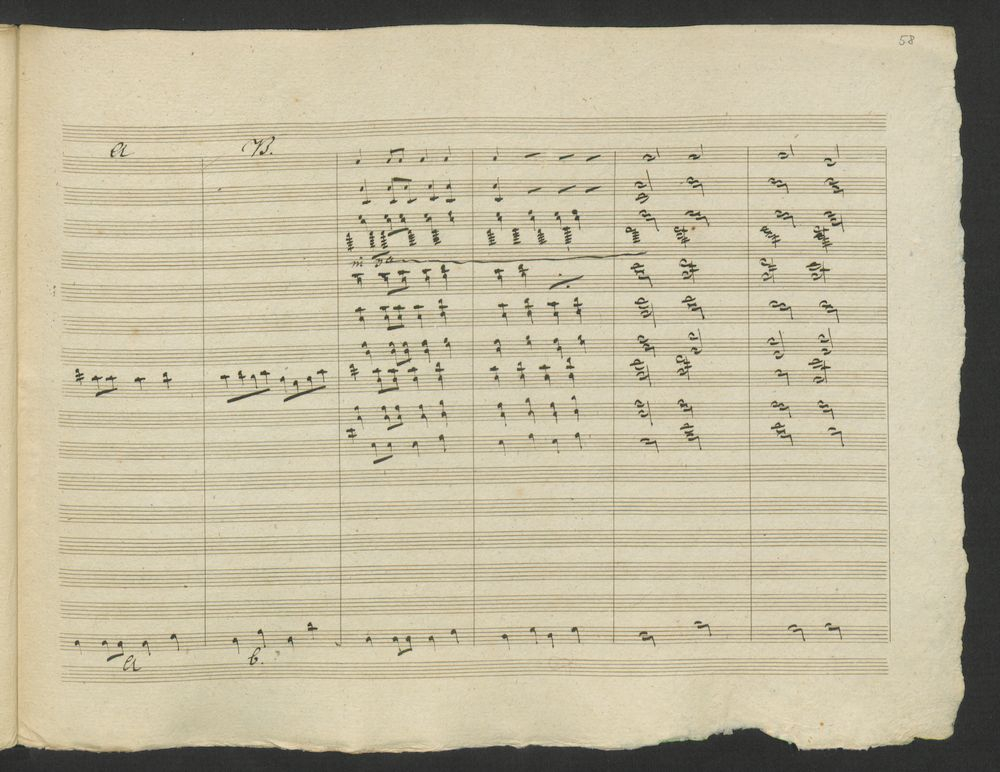 58
a B.
a b.